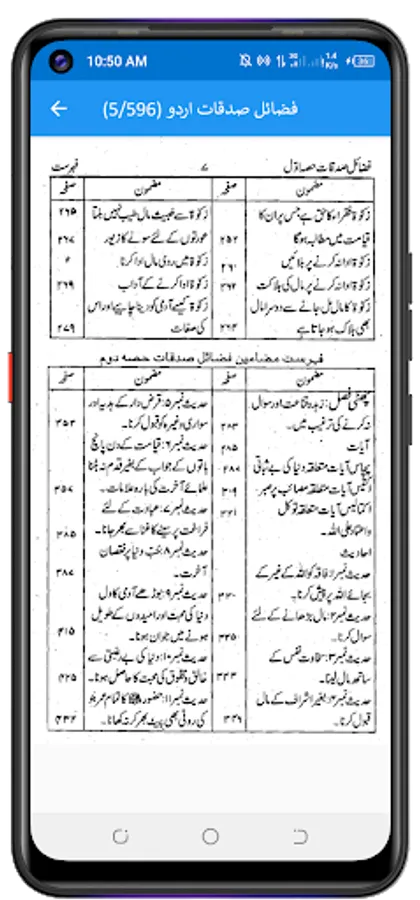 10:50 AM
فضائل صدقات اردو (5/596)
فضائل صدقات حصہ اول ۷ فہرست
مضمون صفحہ
زکوٰۃ فقراء کا حق ہے جس پر ان کا
قیامت میں مطالبہ ہوگا ۲۵۲
زکوٰۃ ادا نہ کرنے پر بلائیں ۲۶۰
زکوٰۃ ادا نہ کرنے پر مال کی ہلاکت ۲۶۲
زکوٰۃ کا مال مل جانے سے دوسرا مال
بھی ہلاک ہو جاتا ہے ۲۶۴
مضمون صفحہ
زکوٰۃ سے خبیث مال طیب نہیں بنتا ۲۶۵
عورتوں کے لئے سونے کا زیور ۲۶۷
زکوٰۃ میں ردی مال ادا کرنا
زکوٰۃ ادا کرنے کے آداب ۲۶۹
زکوٰۃ کیسے آدمی کو دینا چاہیے اور اس
کی صفات ۲۷۹
فہرست مضامین فضائل صدقات حصہ دوم
مضمون صفحہ
چھٹی فصل: زہد و قناعت اور سوال
نہ کرنے کی ترغیب میں۔ ۲۸۳
آیات ۲۸۵
پچاس آیات متعلقہ دنیا کی بے ثباتی ۲۸۷
انتیس آیات متعلقہ مصائب پر صبر ۳۰۹
اکتالیس آیات متعلقہ توکل ۳۲۱
واعتماد علی اللہ۔
احادیث
حدیث نمبر۱: فاقہ کو اللہ کے غیر کے
بجائے اللہ پر پیش کرنا۔ ۳۳۰
حدیث نمبر۲: مال بڑھانے کے لئے
سوال کرنا۔ ۳۳۵
حدیث نمبر۳: سخاوت نفس کے
ساتھ مال لینا۔ ۳۴۳
حدیث نمبر۴: بغیر اشراف کے مال
قبول کرنا۔ ۳۴۹
مضمون صفحہ
حدیث نمبر۵: قرض دار کے ہدیہ اور
سواری وغیرہ کو قبول کرنا۔ ۳۵۳
حدیث نمبر۶: قیامت کے دن پانچ
باتوں کے جواب کے بغیر قدم نہ ہٹنا
علمائے آخرت کی بارہ علامات۔ ۳۵۷
حدیث نمبر۷: عبادت کے لئے
فراغت پر سینے کا غنا سے بھر جانا۔ ۳۸۵
حدیث نمبر۸: حب دنیا پر نقصان
آخرت۔ ۳۸۷
حدیث نمبر۹: بوڑھے آدمی کا دل
دنیا کی محبت اور امیدوں کے طویل
ہونے میں جوان ہونا۔ ۴۱۵
حدیث نمبر۱۰: دنیا کی بے رغبتی سے
خالق و مخلوق کی محبت کا حاصل ہونا۔ ۴۲۵
حدیث نمبر۱۱: حضور ﷺ کا تمام عمر جو
کی روٹی بھی پیٹ بھر کر نہ کھانا۔ ۴۳۲